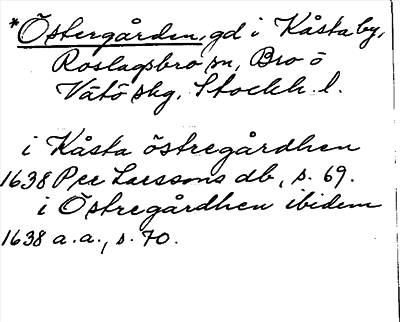 *Östergården, gd i Kåsta by,
Roslagsbro sn, Bro o
Vätö skg, Stockh. l.
i Kåsta östregårdhen
1638 Per Larssons db, s. 69.
i Östregårdhen ibidem
1638 a.a., s. 70.